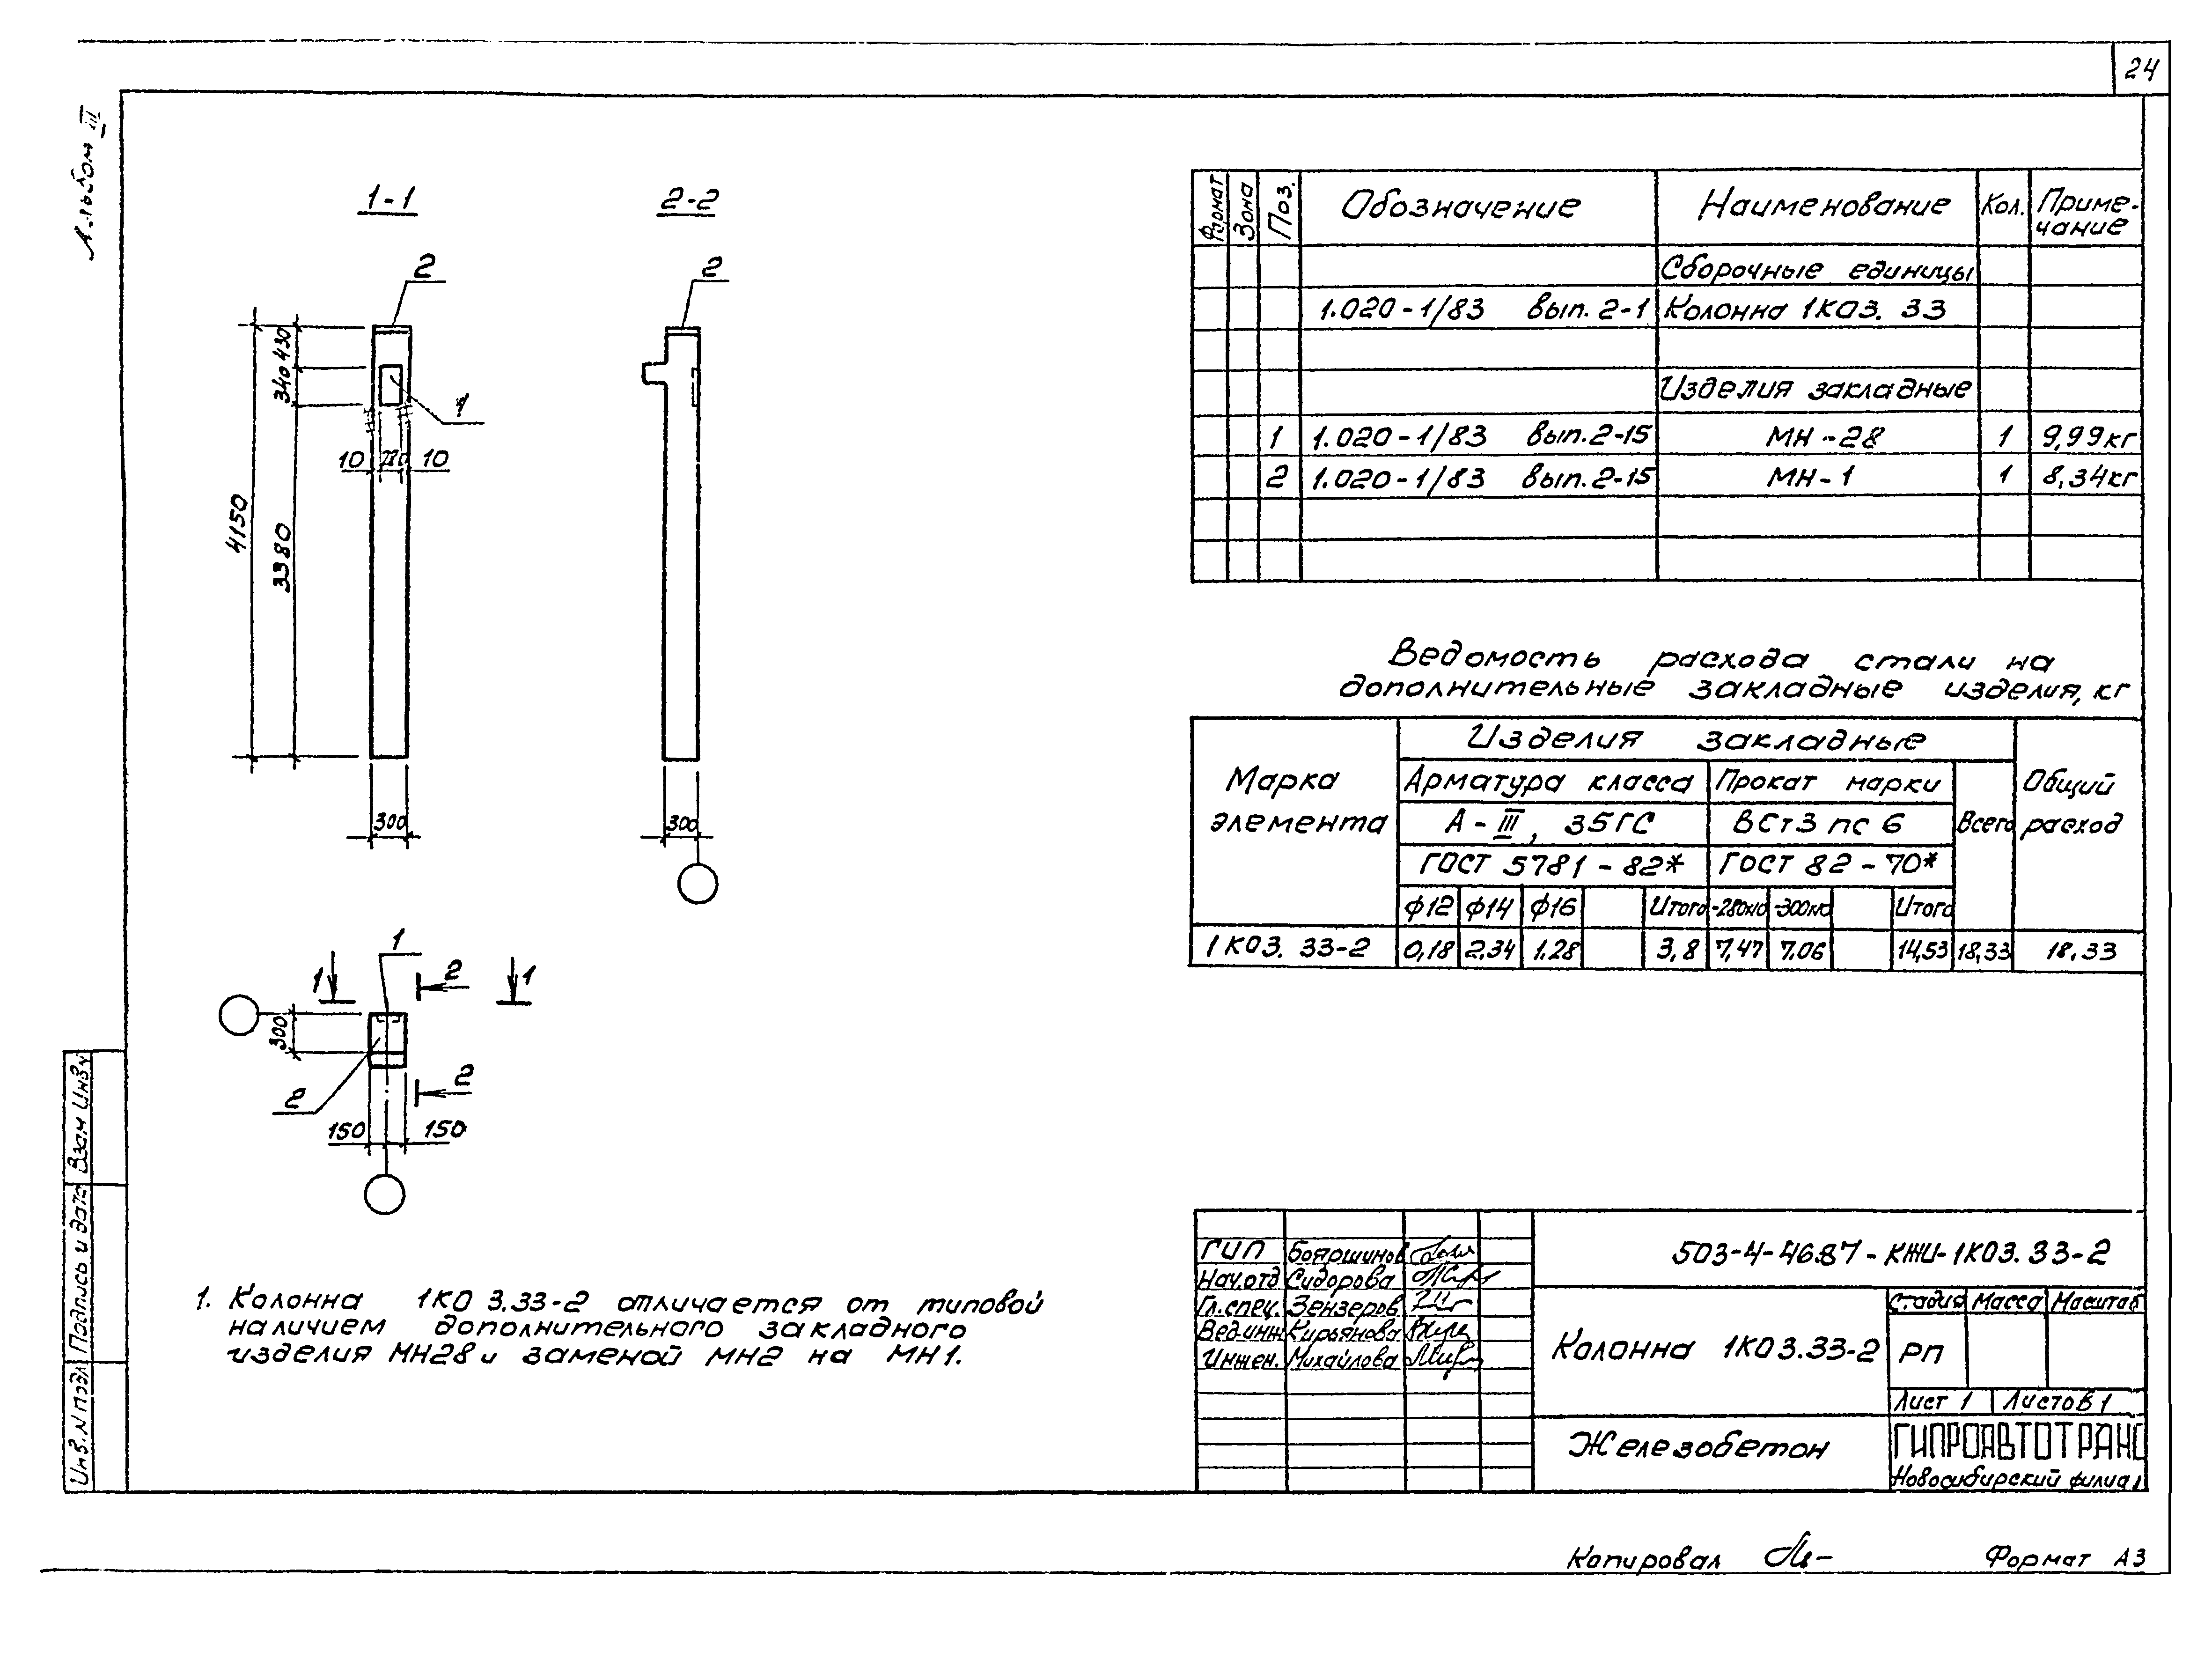 24
Альбом III
1-1
2-2
2
2
430
340
1
10 280 10
4150
3380
300
300
1
1
2
1
300
2
2
150
150
Формат Зона Поз. Обозначение Наименование Кол. Приме-
чание
Сборочные единицы
1.020-1/83 вып. 2-1 Колонна 1КО3. 33
Изделия закладные
1 1.020-1/83 вып. 2-15 МН-28 1 9,99кг
2 1.020-1/83 вып. 2-15 МН-1 1 8,34кг
Ведомость расхода стали на
дополнительные закладные изделия, кг
Марка
элемента
Изделия закладные
Арматура класса
Прокат марки
А-III, 35ГС
ВСт3 пс 6
ГОСТ 5781-82*
ГОСТ 82-70*
Всего
Общий
расход
ф12 ф14 ф16 Итого -280×10 -300×10 Итого
1КО3. 33-2 0,18 2.34 1.28 3,8 7,47 7.06 14,53 18,33 18,33
1. Колонна 1КО 3.33-2 отличается от типовой
наличием дополнительного закладного
изделия МН28 и заменой МН2 на МН1.
ГИП Бояршинов
Нач.отд Сидорова
Гл.спец. Зензеров
Вед.инж Кирьянова
Инжен. Михайлова
503-4-46.87-КЖИ-1КО3.33-2
Колонна 1КО3.33-2
Стадия Масса Масштаб
РП
Лист 1 Листов 1
Железобетон
ГИПРОАВТОТРАНС
Новосибирский филиал
Взам Инв.N
Подпись и дата
Инв.N подл
Копировал
Формат А3